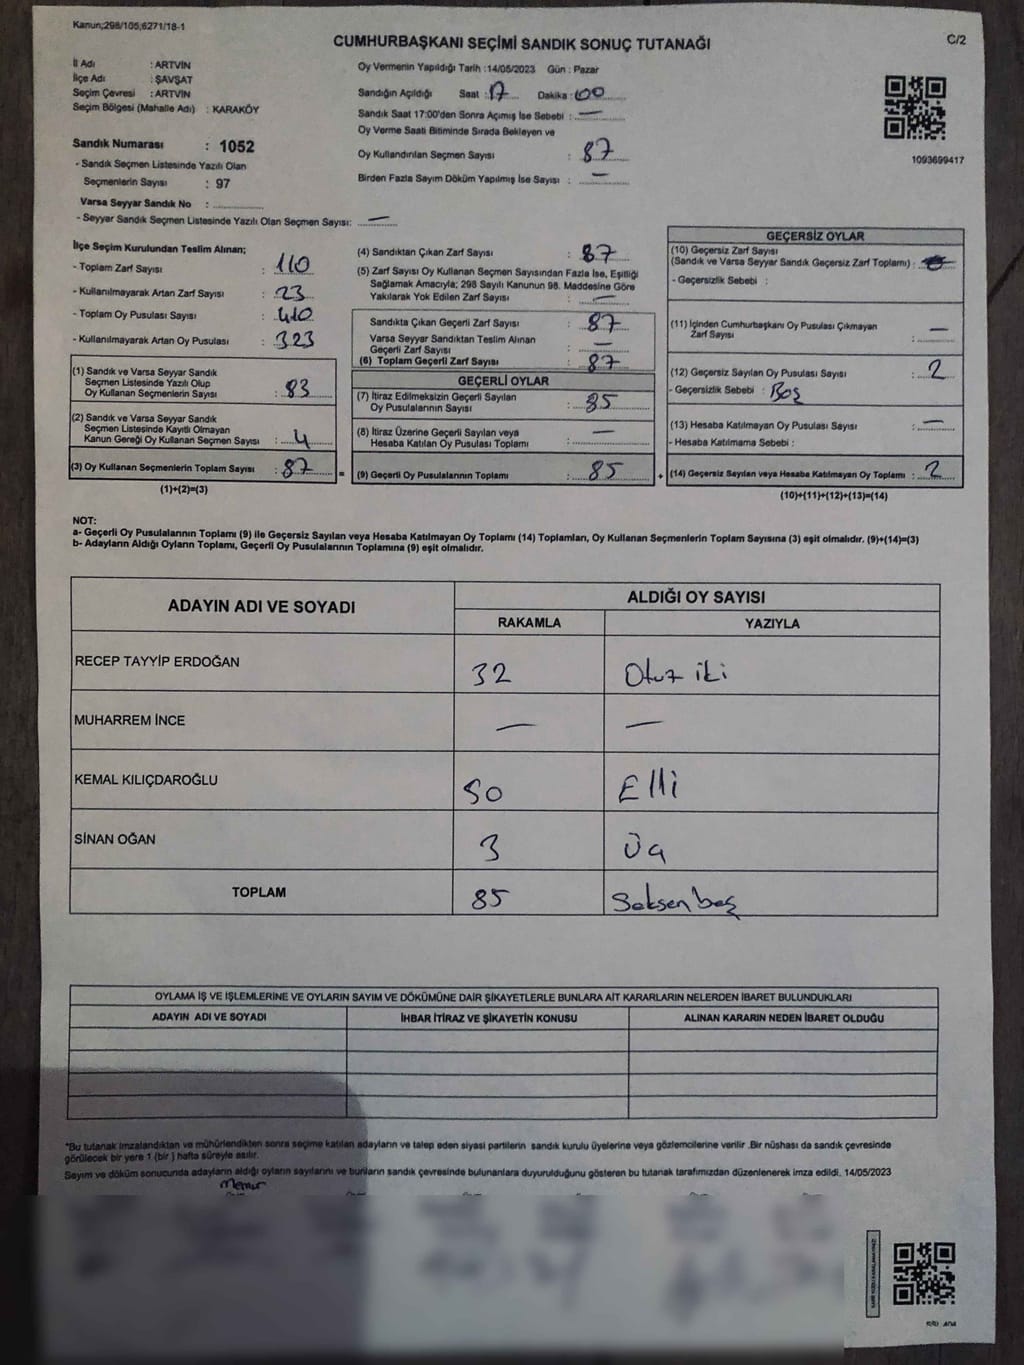 Kanun;298/105,6271/18-1
C/2
CUMHURBAŞKANI SEÇİMİ SANDIK SONUÇ TUTANAĞI
İl Adı : ARTVİN
İlçe Adı : ŞAVŞAT
Seçim Çevresi : ARTVİN
Seçim Bölgesi (Mahalle Adı) : KARAKÖY
Sandık Numarası : 1052
- Sandık Seçmen Listesinde Yazılı Olan
Seçmenlerin Sayısı : 97
Varsa Seyyar Sandık No :
- Seyyar Sandık Seçmen Listesinde Yazılı Olan Seçmen Sayısı: —
Oy Vermenin Yapıldığı Tarih :14/05/2023 Gün : Pazar
Sandığın Açıldığı Saat : 17 Dakika : 00
Sandık Saat 17:00'den Sonra Açımış İse Sebebi : —
Oy Verme Saati Bitiminde Sırada Bekleyen ve
Oy Kullandırılan Seçmen Sayısı : 87
Birden Fazla Sayım Döküm Yapılmış İse Sayısı : —
1093699417
İlçe Seçim Kurulundan Teslim Alınan;
- Toplam Zarf Sayısı : 110
- Kullanılmayarak Artan Zarf Sayısı : 23
- Toplam Oy Pusulası Sayısı : 410
- Kullanılmayarak Artan Oy Pusulası : 323
(1) Sandık ve Varsa Seyyar Sandık
Seçmen Listesinde Yazılı Olup
Oy Kullanan Seçmenlerin Sayısı : 83
(2) Sandık ve Varsa Seyyar Sandık
Seçmen Listesinde Kayıtlı Olmayan
Kanun Gereği Oy Kullanan Seçmen Sayısı : 4
(3) Oy Kullanan Seçmenlerin Toplam Sayısı : 87 =
(1)+(2)=(3)
(4) Sandıktan Çıkan Zarf Sayısı : 87
(5) Zarf Sayısı Oy Kullanan Seçmen Sayısından Fazla İse, Eşitliği
Sağlamak Amacıyla; 298 Sayılı Kanunun 98. Maddesine Göre
Yakılarak Yok Edilen Zarf Sayısı : —
Sandıkta Çıkan Geçerli Zarf Sayısı : 87
Varsa Seyyar Sandıktan Teslim Alınan
Geçerli Zarf Sayısı : —
(6) Toplam Geçerli Zarf Sayısı : 87
GEÇERLİ OYLAR
(7) İtiraz Edilmeksizin Geçerli Sayılan
Oy Pusulalarının Sayısı : 85
(8) İtiraz Üzerine Geçerli Sayılan veya
Hesaba Katılan Oy Pusulası Toplamı : —
(9) Geçerli Oy Pusulalarının Toplamı : 85 +
GEÇERSİZ OYLAR
(10) Geçersiz Zarf Sayısı
(Sandık ve Varsa Seyyar Sandık Geçersiz Zarf Toplamı) :
- Geçersizlik Sebebi :
(11) İçinden Cumhurbaşkanı Oy Pusulası Çıkmayan
Zarf Sayısı : —
(12) Geçersiz Sayılan Oy Pusulası Sayısı : 2
- Geçersizlik Sebebi : Boş
(13) Hesaba Katılmayan Oy Pusulası Sayısı : —
- Hesaba Katılmama Sebebi :
(14) Geçersiz Sayılan veya Hesaba Katılmayan Oy Toplamı : 2
(10)+(11)+(12)+(13)=(14)
NOT:
a- Geçerli Oy Pusulalarının Toplamı (9) ile Geçersiz Sayılan veya Hesaba Katılmayan Oy Toplamı (14) Toplamları, Oy Kullanan Seçmenlerin Toplam Sayısına (3) eşit olmalıdır. (9)+(14)=(3)
b- Adayların Aldığı Oyların Toplamı, Geçerli Oy Pusulalarının Toplamına (9) eşit olmalıdır.
ADAYIN ADI VE SOYADI
ALDIĞI OY SAYISI
RAKAMLA YAZIYLA
RECEP TAYYİP ERDOĞAN 32 Otuz iki
MUHARREM İNCE — —
KEMAL KILIÇDAROĞLU 50 Elli
SİNAN OĞAN 3 Üç
TOPLAM 85 Seksen beş
OYLAMA İŞ VE İŞLEMLERİNE VE OYLARIN SAYIM VE DÖKÜMÜNE DAİR ŞİKAYETLERLE BUNLARA AİT KARARLARIN NELERDEN İBARET BULUNDUKLARI
ADAYIN ADI VE SOYADI İHBAR İTİRAZ VE ŞİKAYETİN KONUSU ALINAN KARARIN NEDEN İBARET OLDUĞU
*Bu tutanak imzalandıktan ve mühürlendikten sonra seçime katılan adayların ve talep eden siyasi partilerin sandık kurulu üyelerine veya gözlemcilerine verilir .Bir nüshası da sandık çevresinde
görülecek bir yere 1 (bir ) hafta süreyle asılır.
Sayım ve döküm sonucunda adayların aldığı oyların sayılarını ve bunların sandık çevresinde bulunanlara duyurulduğunu gösteren bu tutanak tarafımızdan düzenlenerek imza edildi. 14/05/2023
Memur